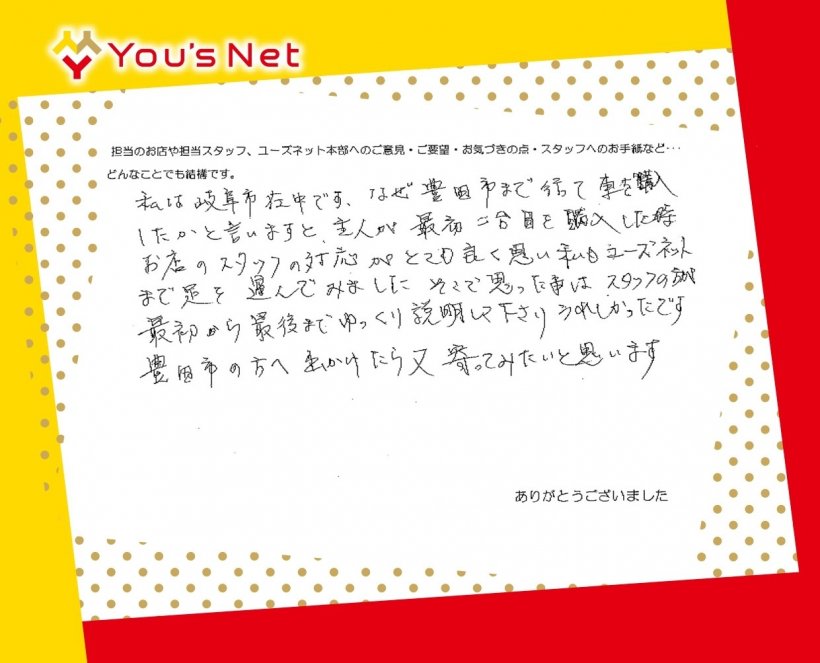 You's Net
担当のお店や担当スタッフ、ユーズネット本部へのご意見・ご要望・お気づきの点・スタッフへのお手紙など・・・
どんなことでも結構です。
私は岐阜市在中です、なぜ豊田市まで行って車を購入
したかと言いますと、主人が最初二台目を購入した時
お店のスタッフの対応がとても良く思い私もユーズネット
まで足を運んでみました そこで思った事はスタッフの方が
最初から最後までゆっくり説明して下さりうれしかったです
豊田市の方へ出かけたら又寄ってみたいと思います
ありがとうございました